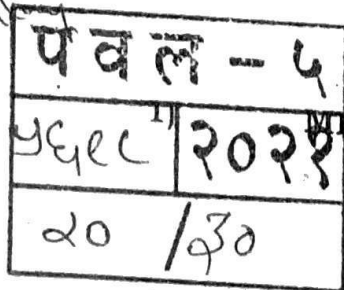 पे व ल - ५
५६९८ २०२१
२० /३०